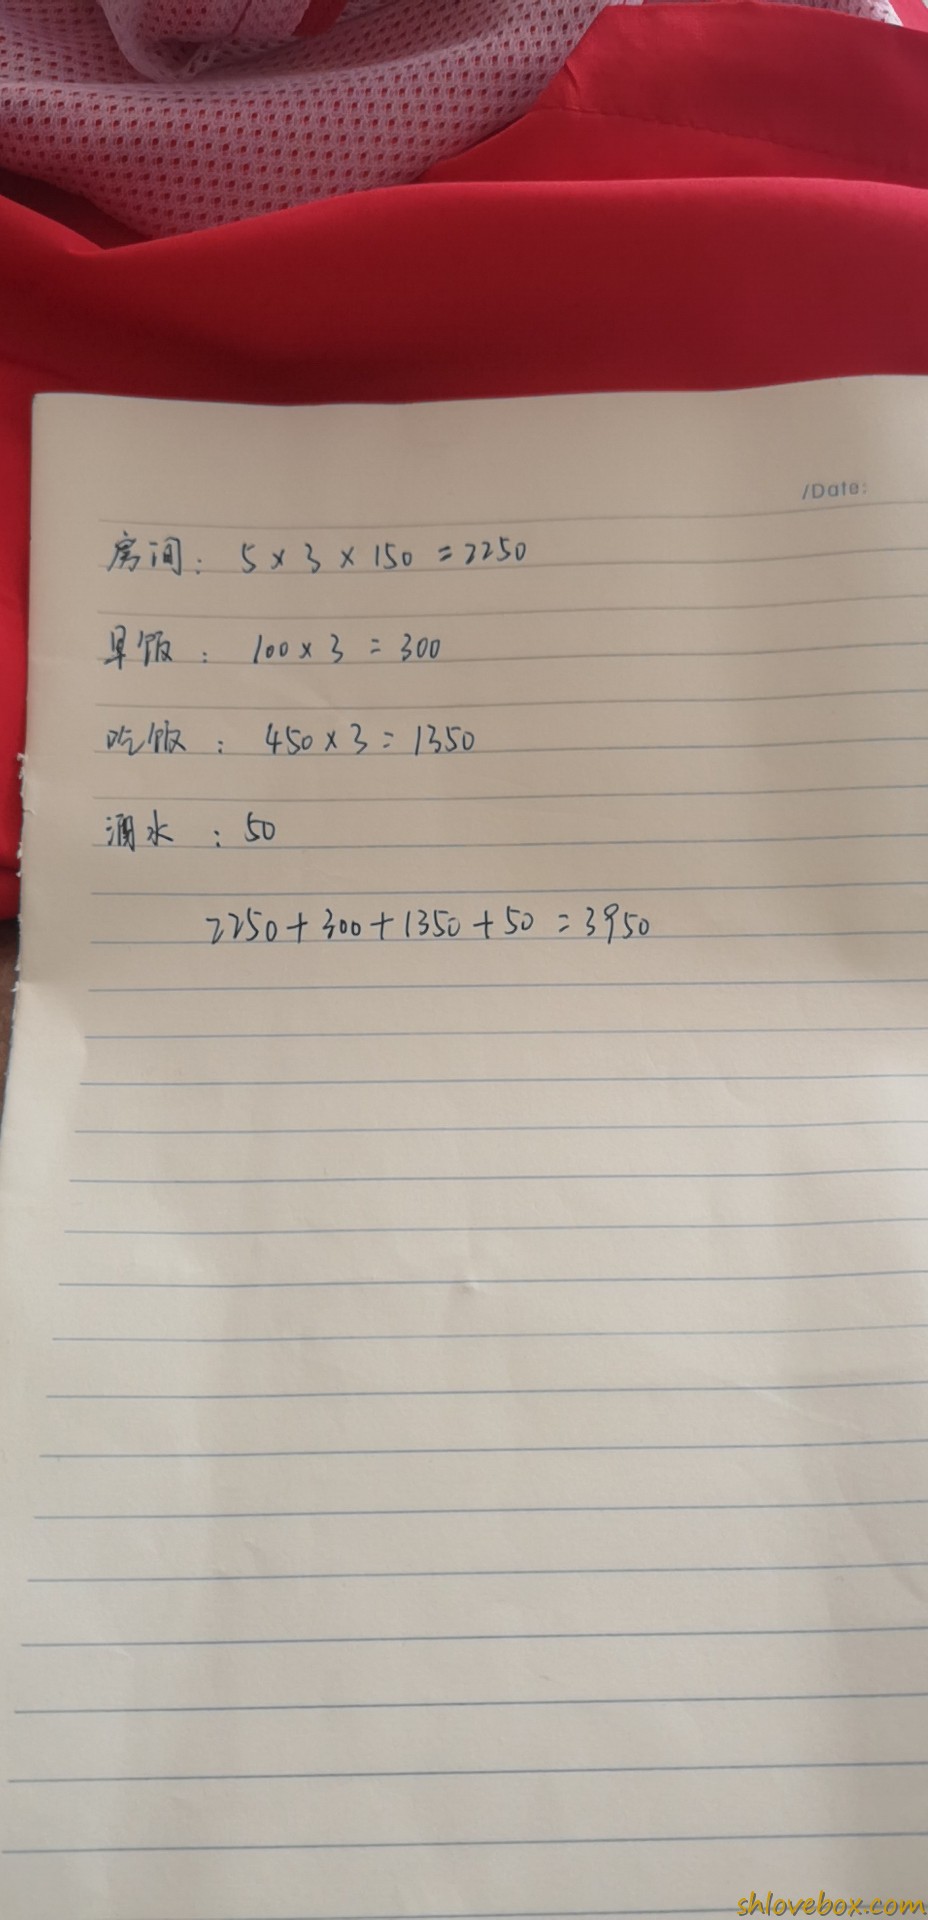 /Date:
房间: 5 × 3 × 150 = 2250
早饭: 100 × 3 = 300
吃饭: 450 × 3 = 1350
酒水: 50
2250 + 300 + 1350 + 50 = 3950
shlovebox.com